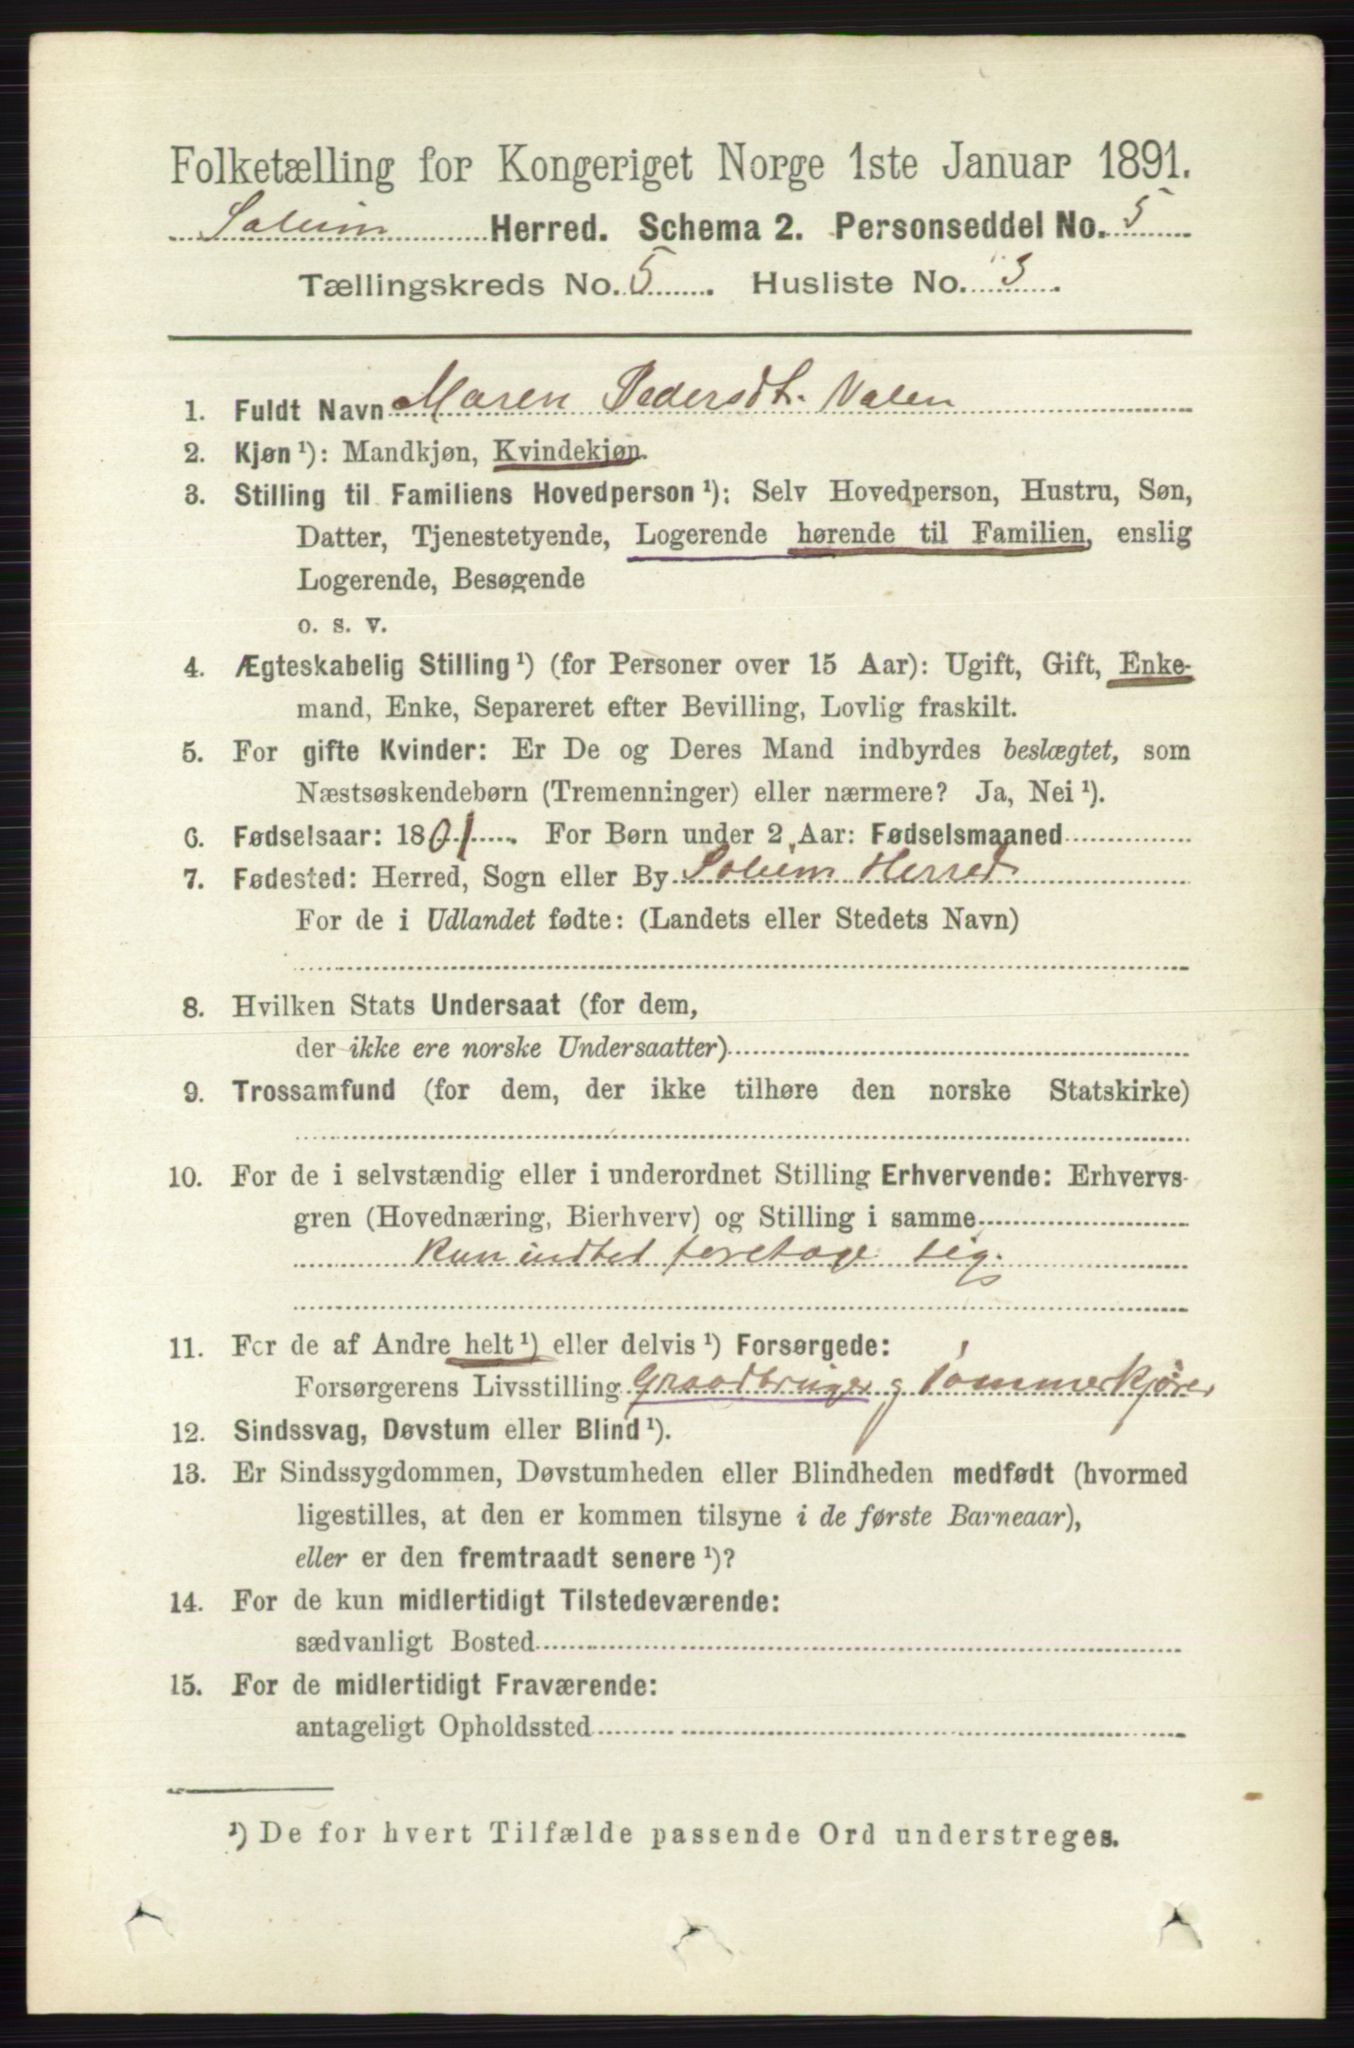 Folketælling for Kongeriget Norge 1ste Januar 1891.
Solum Herred. Schema 2. Personseddel No. 5
Tællingskreds No. 5. Husliste No. 3.
1. Fuldt Navn Maren Pedersdt. Valen
2. Kjøn ¹): Mandkjøn, Kvindekjøn.
3. Stilling til Familiens Hovedperson ¹): Selv Hovedperson, Hustru, Søn,
Datter, Tjenestetyende, Logerende hørende til Familien, enslig
Logerende, Besøgende
o. s. v.
4. Ægteskabelig Stilling ¹) (for Personer over 15 Aar): Ugift, Gift, Enke-
mand, Enke, Separeret efter Bevilling, Lovlig fraskilt.
5. For gifte Kvinder: Er De og Deres Mand indbyrdes beslægtet, som
Næstsøskendebørn (Tremenninger) eller nærmere? Ja, Nei ¹).
6. Fødselsaar: 1801. For Børn under 2 Aar: Fødselsmaaned
7. Fødested: Herred, Sogn eller By Solum Herred
For de i Udlandet fødte: (Landets eller Stedets Navn)
8. Hvilken Stats Undersaat (for dem,
der ikke ere norske Undersaatter)
9. Trossamfund (for dem, der ikke tilhøre den norske Statskirke)
10. For de i selvstændig eller i underordnet Stilling Erhvervende: Erhvervs-
gren (Hovednæring, Bierhverv) og Stilling i samme
kun indtet foretage sig.
11. For de af Andre helt ¹) eller delvis ¹) Forsørgede:
Forsørgerens Livsstilling Graadbruger g Tømmerkjører
12. Sindssvag, Døvstum eller Blind ¹).
13. Er Sindssygdommen, Døvstumheden eller Blindheden medfødt (hvormed
ligestilles, at den er kommen tilsyne i de første Barneaar),
eller er den fremtraadt senere ¹)?
14. For de kun midlertidigt Tilstedeværende:
sædvanligt Bosted
15. For de midlertidigt Fraværende:
antageligt Opholdssted
¹) De for hvert Tilfælde passende Ord understreges.